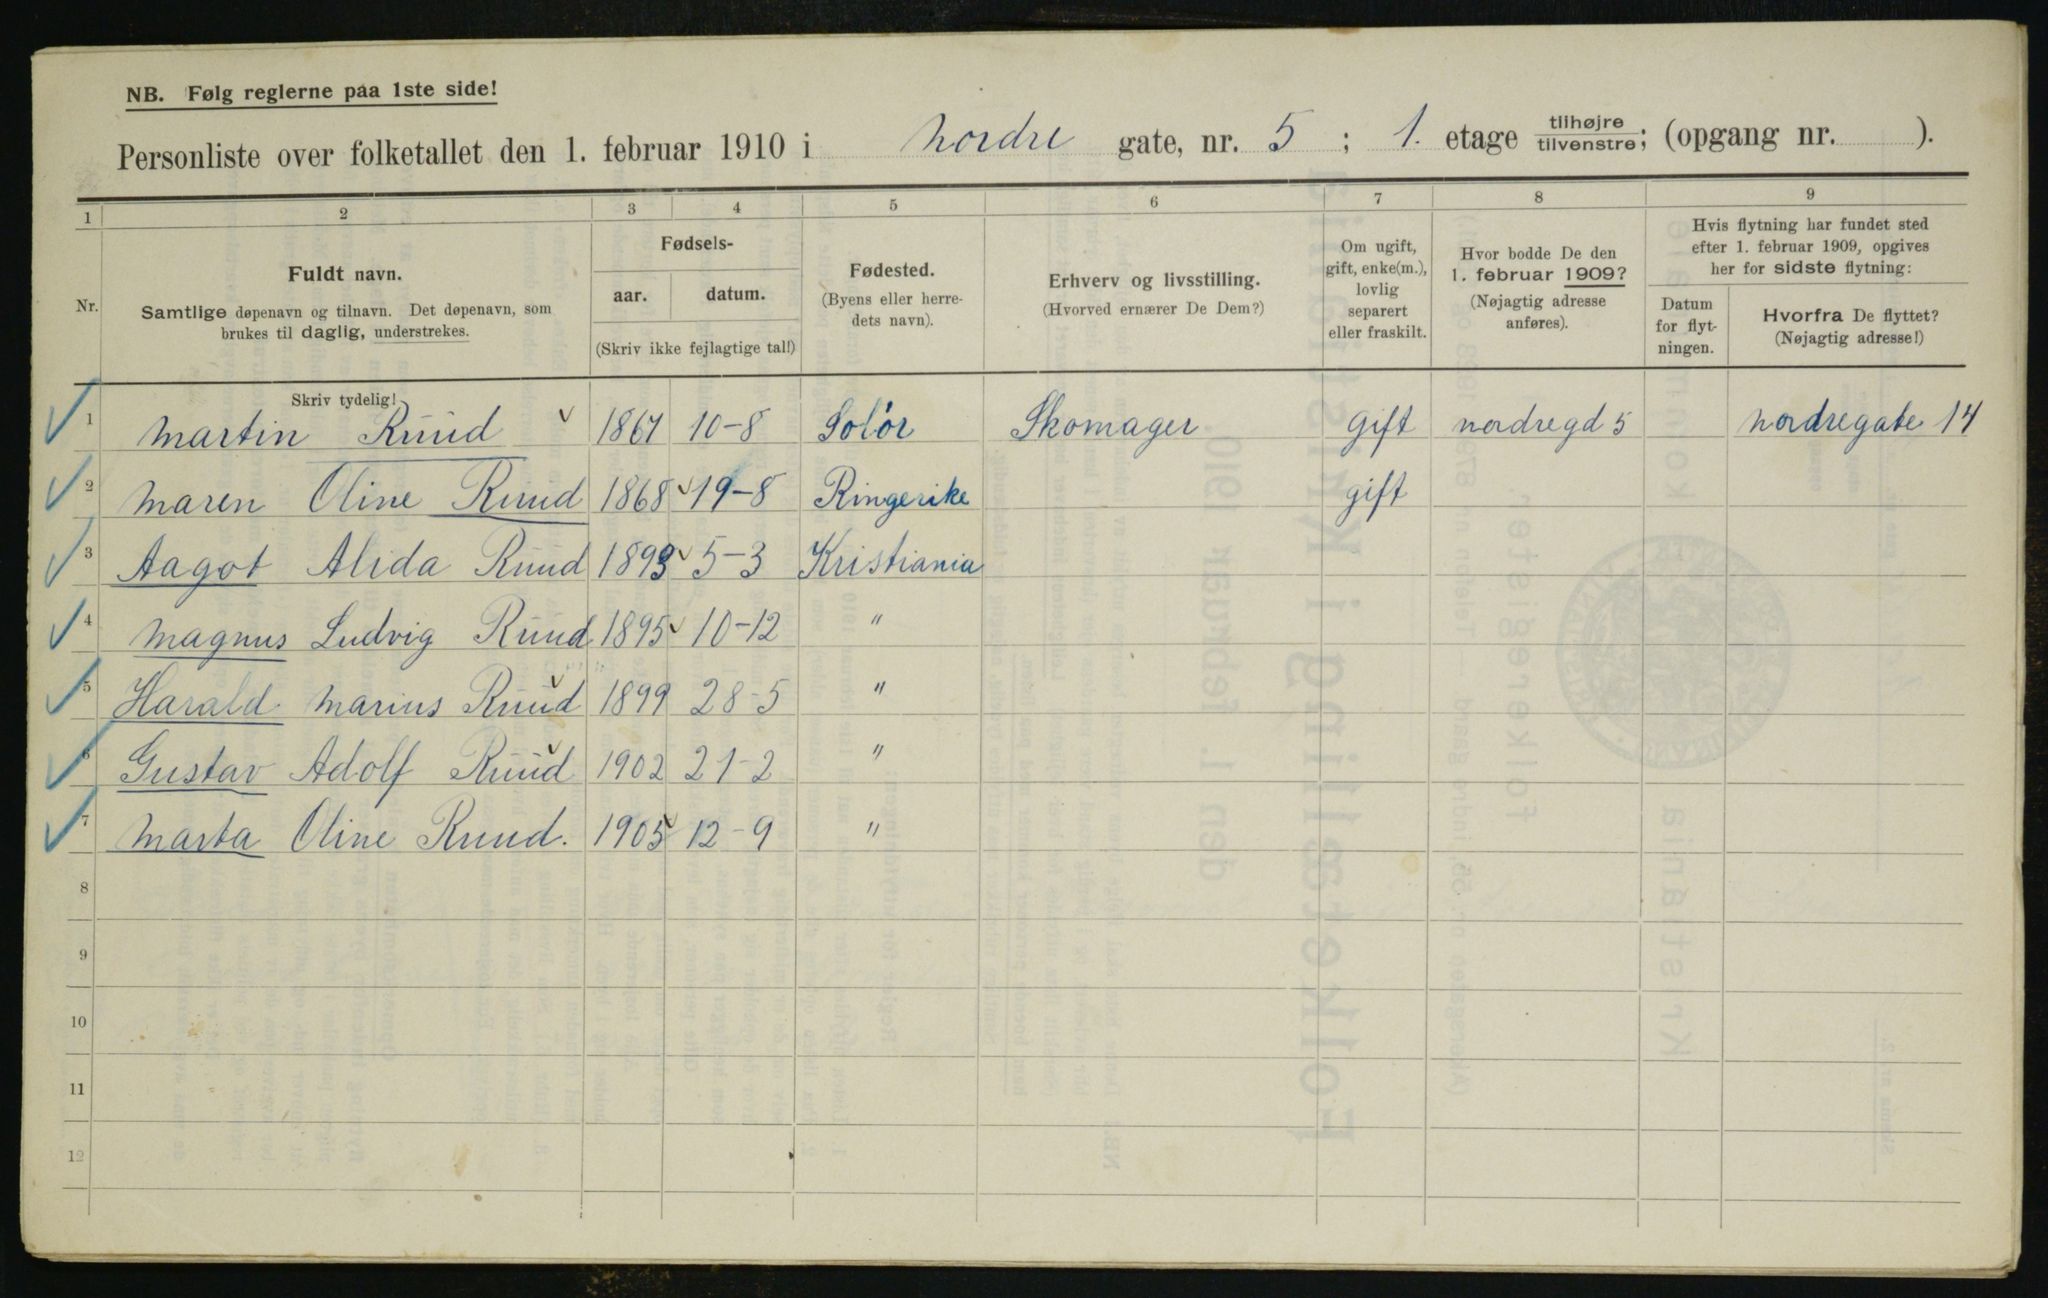 NB. Følg reglerne paa 1ste side!
Personliste over folketallet den 1. februar 1910 i Nordre gate, nr. 5 ; 1. etage tilhøjre/tilvenstre; (opgang nr. ).
1 2 3 4 5 6 7 8 9
Nr.
Fuldt navn.
Samtlige døpenavn og tilnavn. Det døpenavn, som
brukes til daglig, understrekes.
Fødsels-
aar. datum.
(Skriv ikke fejlagtige tal!)
Fødested.
(Byens eller herre-
dets navn).
Erhverv og livsstilling.
(Hvorved ernærer De Dem?)
Om ugift,
gift, enke(m.),
lovlig
separert
eller fraskilt.
Hvor bodde De den
1. februar 1909?
(Nøjagtig adresse
anføres).
Hvis flytning har fundet sted
efter 1. februar 1909, opgives
her for sidste flytning:
Datum
for flyt-
ningen.
Hvorfra De flyttet?
(Nøjagtig adresse!)
Skriv tydelig!
1 Martin Ruud 1867 10-8 Solør Skomager gift nordregd 5 Nordregate 14
2 Maren Oline Ruud 1868 19-8 Ringerike gift
3 Aagot Alida Ruud 1893 5-3 Kristiania
4 Magnus Ludvig Ruud 1895 10-12 "
5 Harald Marius Ruud 1899 28-5 "
6 Gustav Adolf Ruud 1902 21-2 "
7 Marta Oline Ruud. 1905 12-9 "
8
9
10
11
12